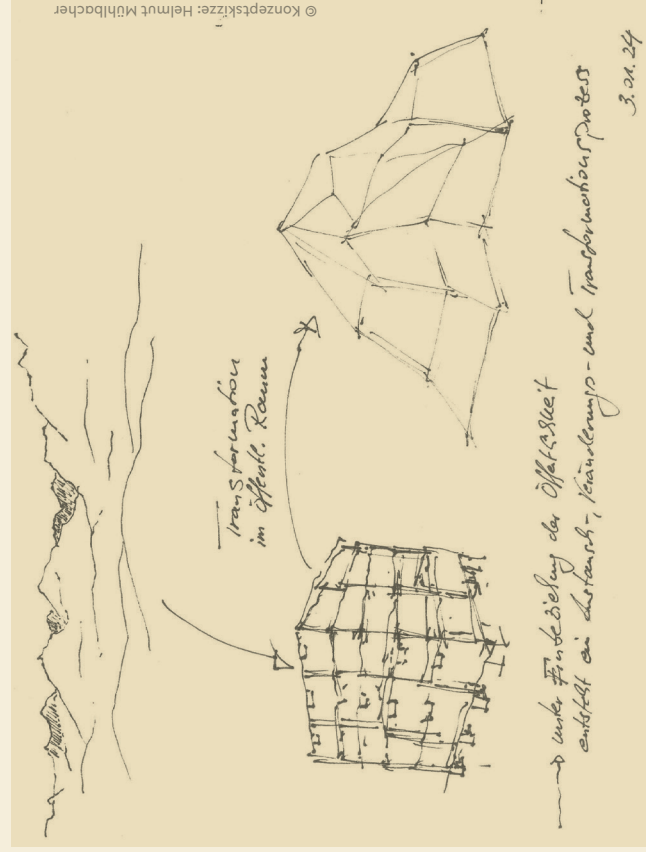 © Konzeptskizze: Helmut Mühlbacher
Transformation
im öffentl. Raum
unter Einbeziehung der Öffentlichkeit
entsteht ein Austausch-, Veränderungs- und Transformationsprozess
3.01.24